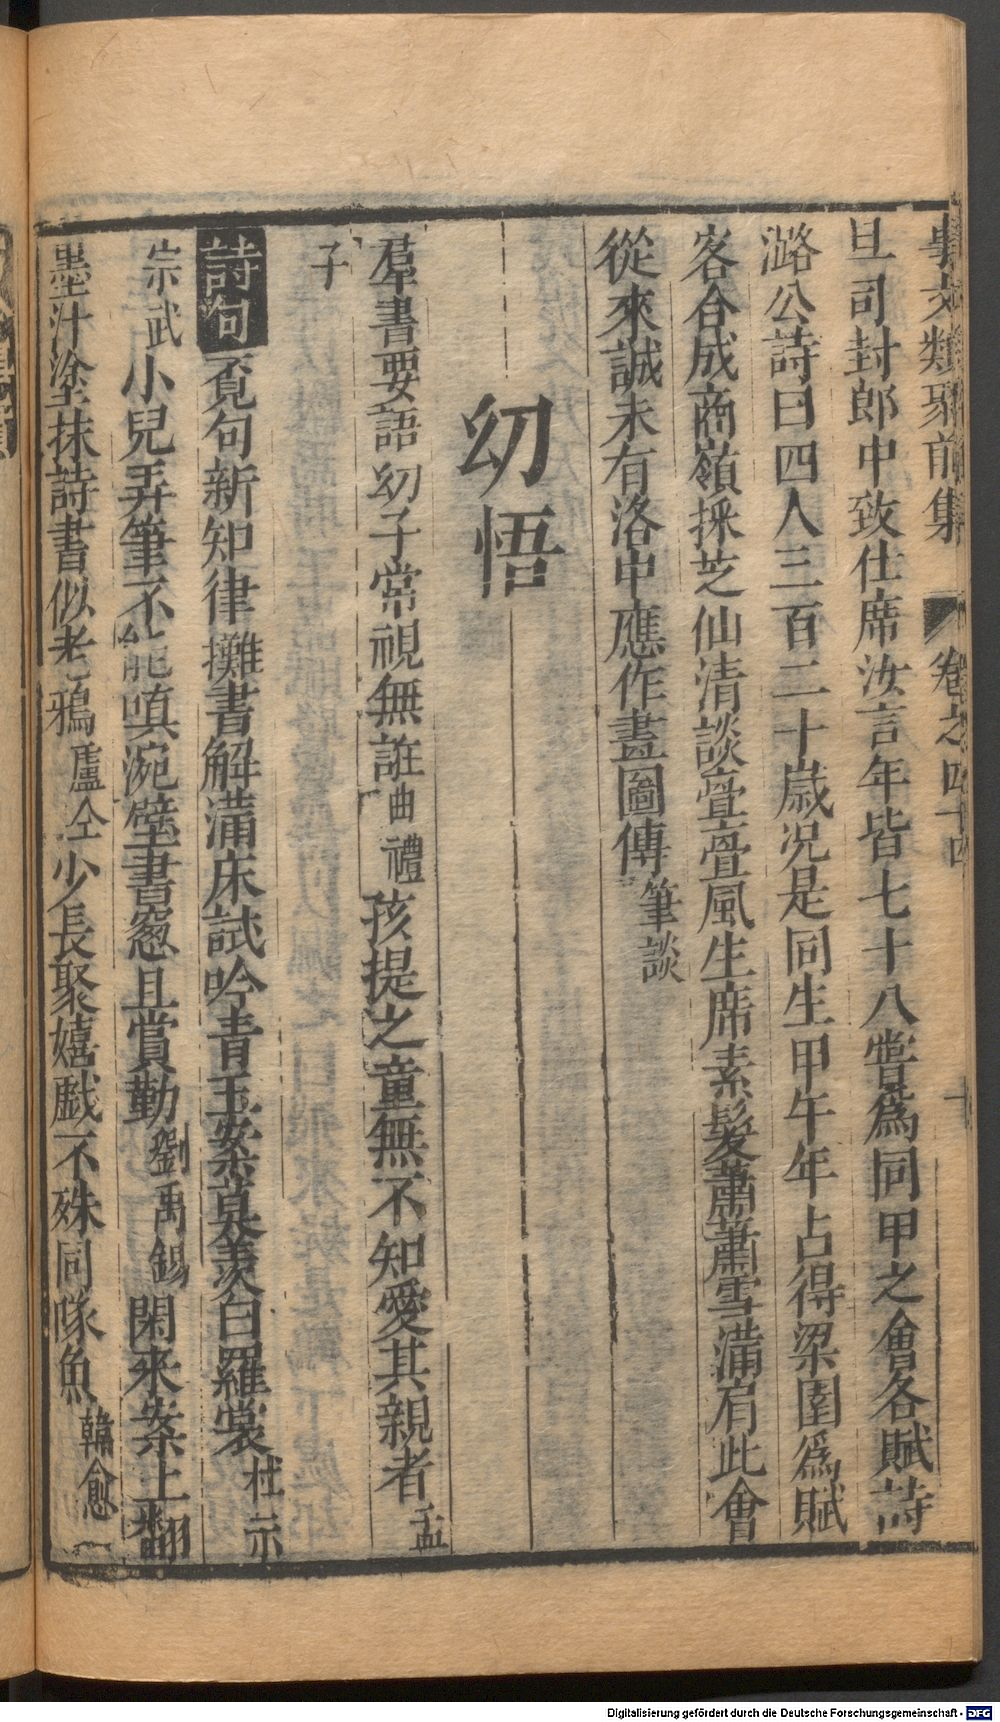 事文類聚前集 卷之四十四 十
旦司封郎中致仕席汝言年皆七十八嘗爲同甲之會各賦詩
潞公詩曰四人三百二十歲况是同生甲午年占得梁園爲賦
客合成商嶺採芝仙清談亹亹風生席素髮蕭蕭雪滿肩此會
從來誠未有洛中應作畫圖傳筆談
幼悟
羣書要語幼子常視無誑曲禮孩提之童無不知愛其親者孟
子
詩句覓句新知律攤書解滿床試吟青玉案莫羨白羅裳杜示
宗武小兒弄筆不能嗔涴壁書窓且賞勤劉禹錫閑來案上翻
墨汁塗抹詩書似老鴉盧仝少長聚嬉戲不殊同隊魚韓愈
Digitalisierung gefördert durch die Deutsche Forschungsgemeinschaft - DFG